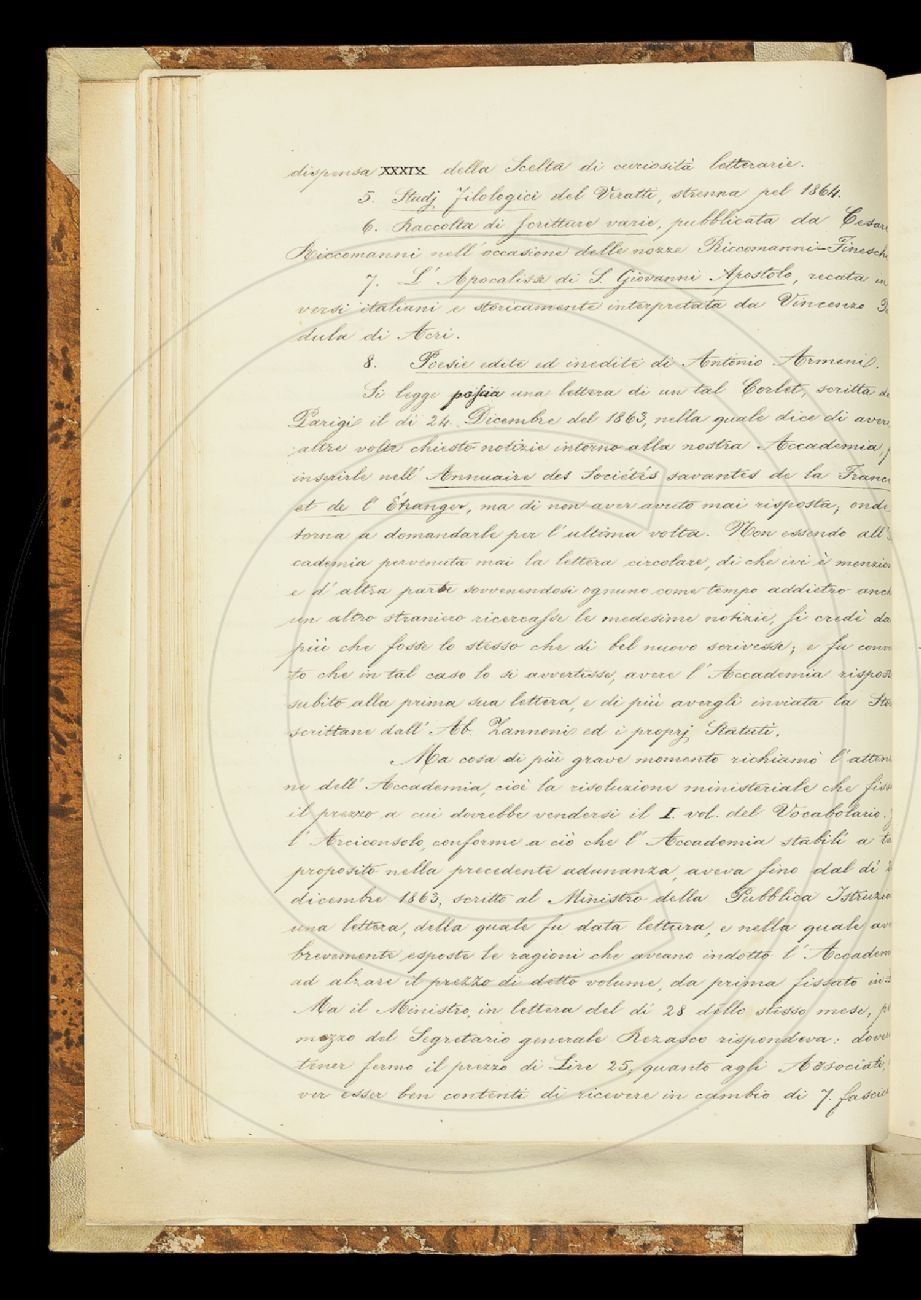 dispensa XXXIX della Scelta di curiosità letterarie.
5. Studj Filologici del Veratti, strenna pel 1864.
6. Raccolta di Scritture varie, pubblicata da Cesar
Riccomanni nell'occasione delle nozze Riccomanni-Finesch
7. L'Apocalisse di S. Giovanni Apostolo, recata in
versi italiani e storicamente interpretata da Vincenzo Pa
dula di Acri.
8. Poesie edite ed inedite di Antonio
Si legge possia una lettera di un tal Corlet, scritta d
Parigi il di 24 Dicembre del 1863, nella quale dice di aver
altre volte chiesto notizie intorno alla nostra Accademia
inserirle nell'Annuaire des Sociétés savantes de la Franc
et de l'Étranger, ma di non aver avuto mai risposta; onde
torna a domandarle per l'ultima volta. Non essendo all'
cademia pervenuta mai la lettera circolare, di che ivi è menzion
e d'altra parte sovvenendosi ognuno come tempo addietro anch
un altro straniero ricercasse le medesime notizie, si credè da
più che fosse lo stesso che di bel nuovo scrivesse; e fu conv
to che in tal caso lo si avvertisse, avere l'Accademia rispos
subito alla prima sua lettera, e di più avergli inviata la Sto
scrittane dall'Ab. Zannoni ed i proprj Statuti.
Ma cosa di più grave momento richiamò l'atten
ne dell'Accademia, cioè la risoluzione ministeriale che fiss
il prezzo a cui dovrebbe vendersi il I. vol. del Vocabolario.
l'Arciconsolo, conforme a ciò che l'Accademia stabilì a t
proposito nella precedente adunanza, aveva fino dal dì 2
dicembre 1863, scritto al Ministro della Pubblica Istruzio
una lettera, della quale fu data lettura, e nella quale av
brevemente esposte le ragioni che aveano indotto l'Accadem
ad alzare il prezzo di detto volume, da prima fissato in
Ma il Ministro, in lettera del dì 28 dello stesso mese, p
mezzo del Segretario generale Rezasco rispondeva: dove
tener fermo il prezzo di Lire 25, quanto agli Associati,
ver esser ben contenti di ricevere in cambio di 7. fascic